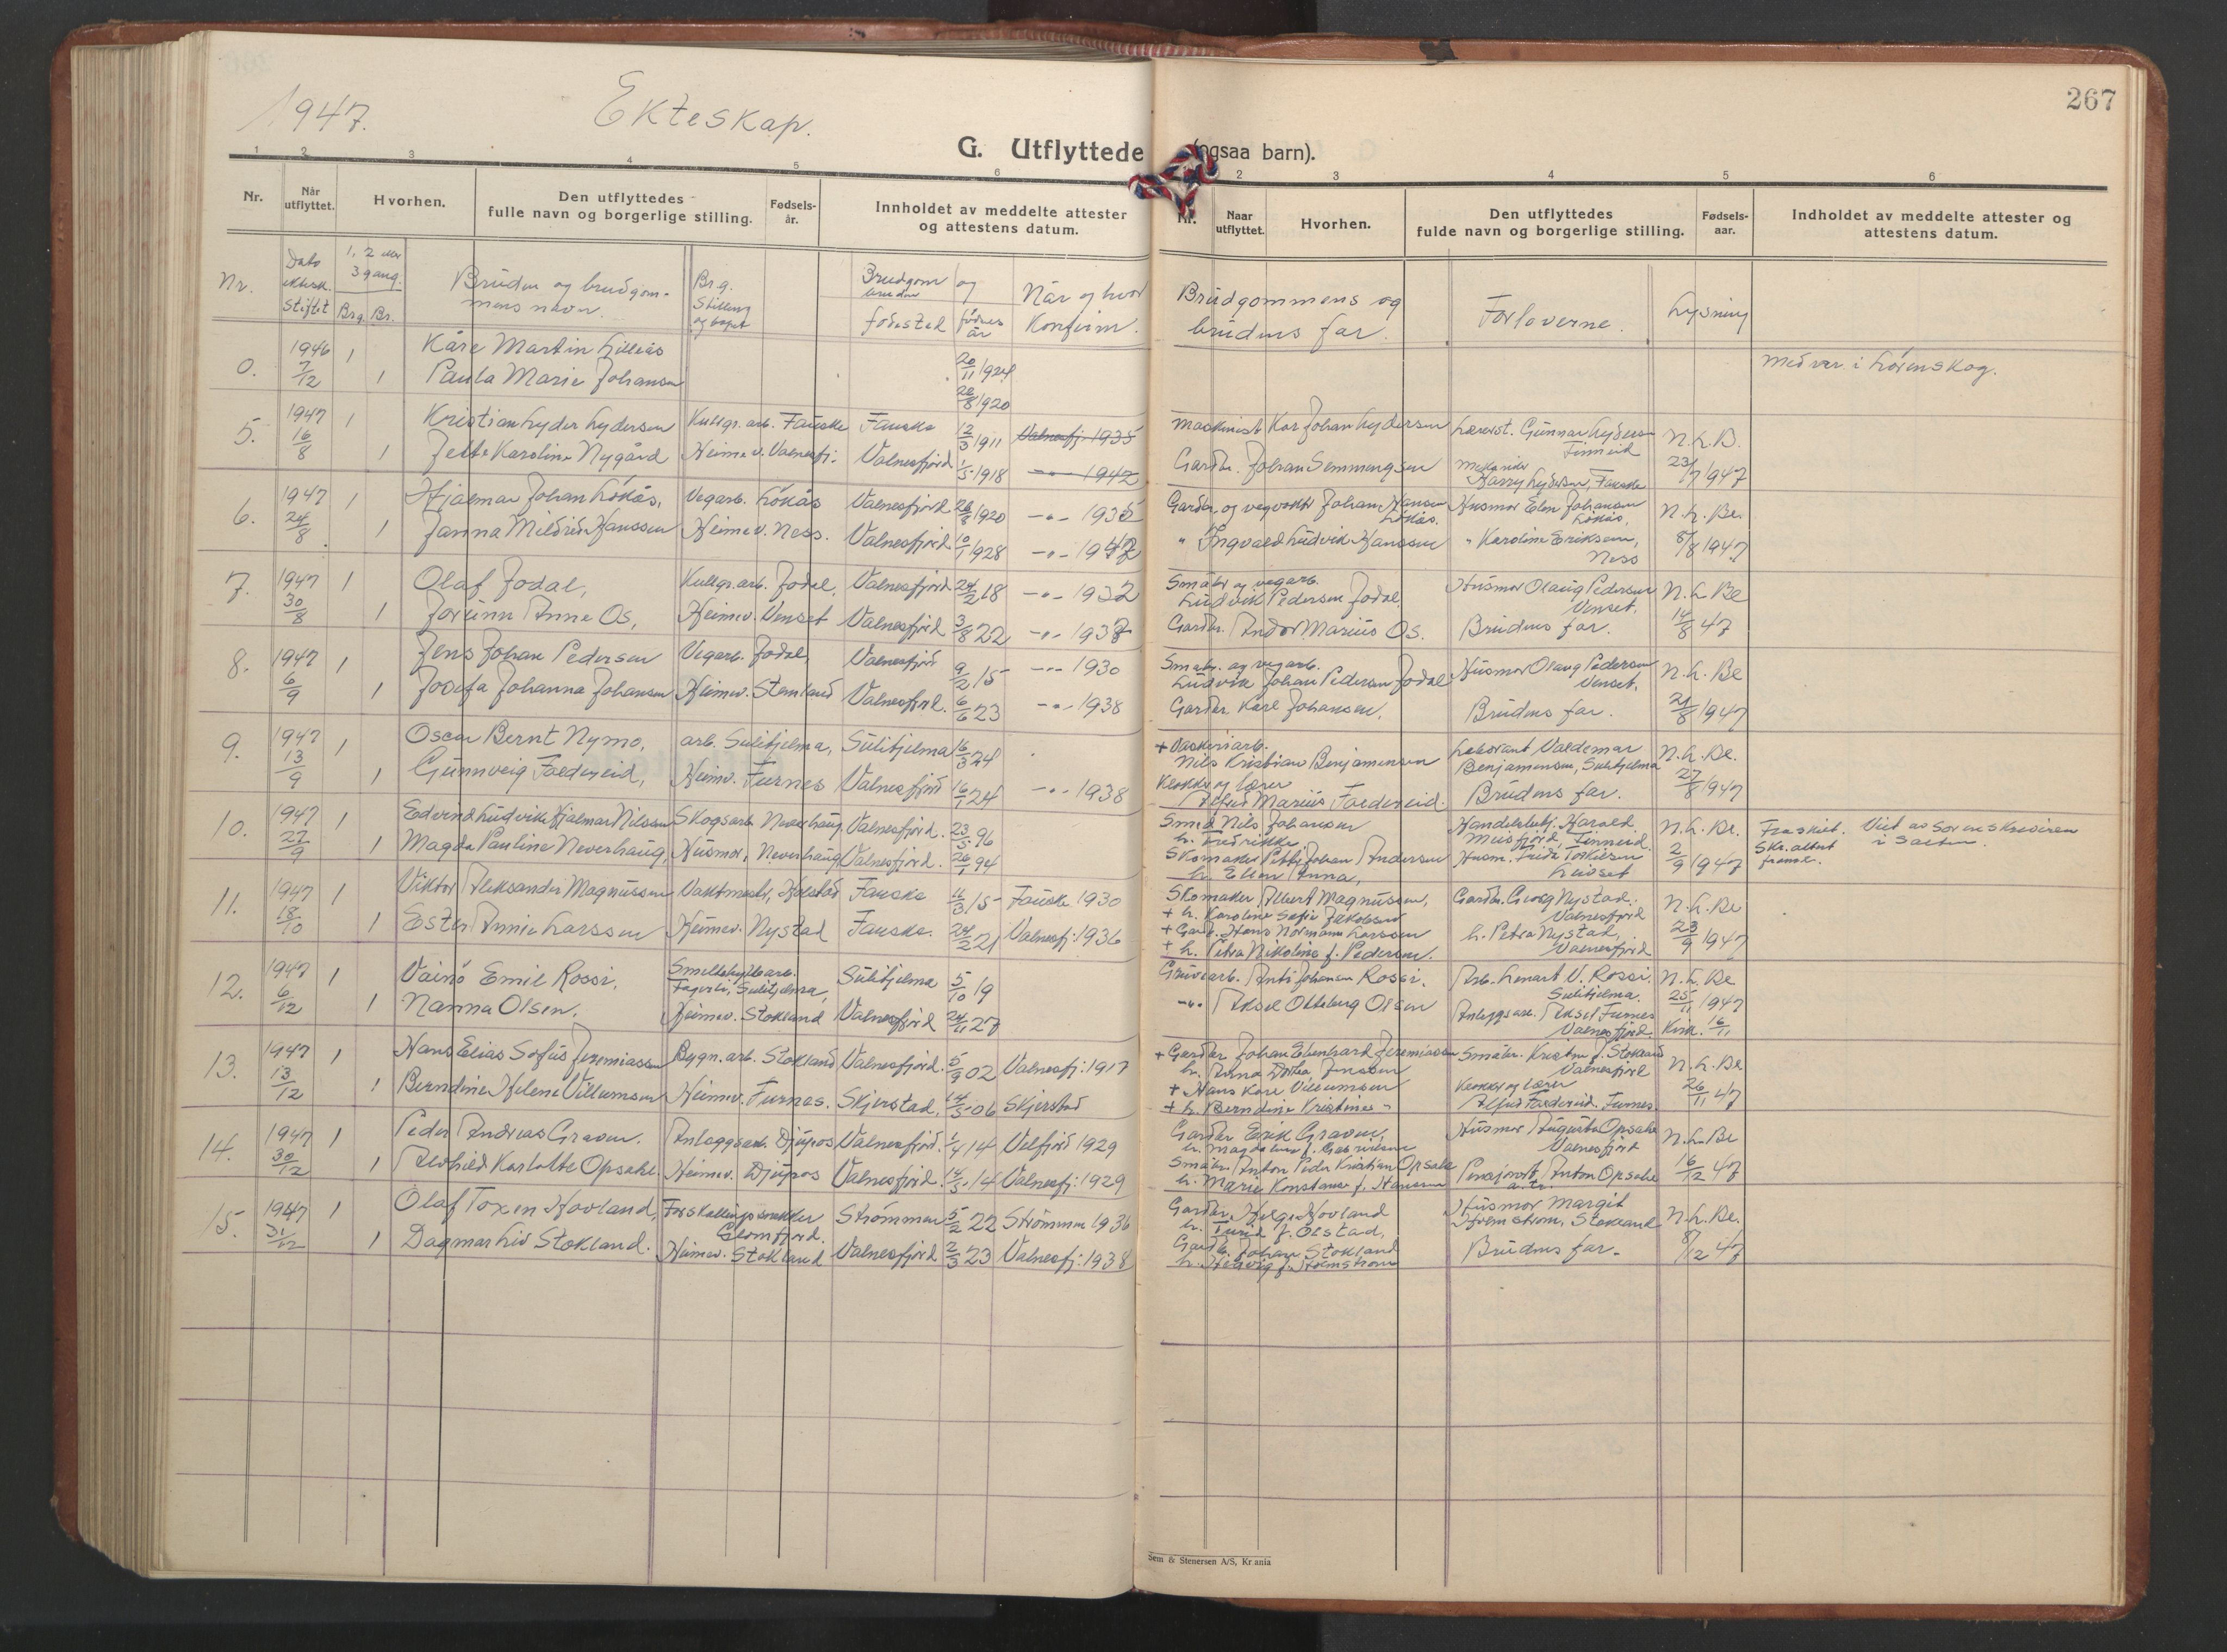 267
1947.
Ekteskap.
G. Utflyttede (ogsaa barn).
1 2 3 4 5 6
Nr. Når utflyttet. Hvorhen. Den utflyttedes fulle navn og borgerlige stilling. Fødsels-år. Innholdet av meddelte attester og attestens datum.
Nr. Dato ektesk. stiftet 1, 2 eller 3 gang. Brg. Br. Brudens og brudgommens navn. Brg. Stilling og bopel Brudgom og bruden fødested fødsels år Når og hvor Konfirm.
0. 1946 7/12 1 Kåre Martin Lilleås 20/11 1924
1 Paula Marie Johansen 26/8 1920
5. 1947 16/8 1 Kristian Lyder Lydersen Kullgr. arb. Fauske Fauske 12/3 1911 Valnesfj. 1935
1 Jette Karoline Nygård Heimev. Valnesfj. Valnesfjord 1/5 1918 -"- 1942
6. 1947 24/8 1 Hjalmar Johan Løkås, Vegarb. Løkås Valnesfjord 26/8 1920 -"- 1935
1 Janna Mildrid Hanssen Heimev. Ness. Valnesfjord 10/1 1928 -"- 1942
7. 1947 30/8 1 Olaf Jodal, Kullgr. arb. Jodal, Valnesfjord 24/2 18 -"- 1932
1 Jorunn Anne Os, Heimev. Venset Valnesfjord 3/8 22 -"- 1937
8. 1947 6/9 1 Jens Johan Pedersen Vegarb. Jodal, Valnesfjord 9/2 15 -"- 1930
1 Josefa Johanna Johansen Heimev. Stemland Valnesfjord. 6/6 23 -"- 1938
9. 1947 13/9 1 Oscar Bernt Nymo, arb. Sulitjelma, Sulitjelma 16/3 24
1 Gunnveig Foldereid, Heimv. Furnes Valnesfjord 16/1 24 -"- 1938
10. 1947 27/9 1 Edvind Ludvik Hjalmar Nilssen Skogsarb. Neverhaug, Valnesfjord. 23/5 96
1 Magda Pauline Neverhaug, Husmor, Neverhaug Valnesfjord. 26/1 94
11. 1947 18/10 1 Viktor Aleksander Magnussen Vaktmester, Fauske 4/3 15 Fauske 1930
1 Ester Annie Larssen Heimev. Nystad Fauske. 24/2 21 Valnesfj. 1936
12. 1947 6/12 1 Väinö Emil Rossi, Smeltehyttearb. Fagerli, Sulitjelma, Sulitjelma 5/10 19
1 Nanna Olsen. Heimev. Stokland Valnesfjord 24/11 27
13. 1947 13/12 1 Hans Elias Sofus Jeremiassen Bygn. arb. Stokland Valnesfjord. 5/9 02 Valnesfj: 1917
1 Berndine Helene Villumsen Heimev. Furnes. Skjerstad, 14/5 06 Skjerstad
14. 1947 30/12 1 Peder Andreas Graven. Anleggsarb. Djupos Valnesfjord. 1/4 14 Velfjord 1929
1 Alvhild Karlotte Opsahl Heimev. Djupos Valnesfjord. 14/5 14 Valnesfj: 1929
15. 1947 31/12 1 Olaf Toxen Hovland, Forskallingssnekker Glomfjord. Strømmen 5/2 22 Strømmen 1936
1 Dagmar Liv Stokland. Heimev. Stokland Valnesfjord 2/3 23 Valnesfj: 1938
2 3 4 5 6
Nr. Naar utflyttet. Hvorhen. Den utflyttedes fulde navn og borgerlige stilling. Fødsels-aar. Indholdet av meddelte attester og attestens datum.
Brudgommens og brudens far. Forloverne. Lysning
Medver i Lørenskog.
Maskinist Kar Johan Lydersen Lærerst. Gunnar Lydersen Finneid N.L.B.
Gardbr. Johan Semmingsen Mekaniker Harry Lydersen, Fauske 23/7 1947
Gardbr. og vegvokter Johan Hansen Løkås. Husmor Elen Johansen Løkås, N.L.Be.
" Ingvald Ludvik Hanssen " Karoline Eriksen, Ness 8/8 1947
Småbr og vegarb. Ludvik Pedersen Jodal. Husmor Olaug Pedersen Venset. N.L.Be
Gardbr. Andor Marius Os. Brudens far. 14/8 47
Småbr. og vegarb. Ludvik Johan Pedersen Jodal Husmor Olaug Pedersen Venset. N.L.Be
Gardbr. Karl Johansen, Brudens far. 21/8 1947
+ Vaskeriarb. Nils Kristian Benjaminsen Laborant Valdemar Benjaminsen, Sulitjelma N.L.Be.
Klokker og lærer Alfred Marius Foldereid. Brudens far. 27/8 1947
Smed Nils Johansen h. Fredrikke Handelsbetj. Harald Meisfjord, Finneid. N.L.Be. Fraskilt. Viet av Sorenskriveren i Salten.
Skomaker Petter Johan Andersen h. Ellen Anna, Husm. Frida Torkilsen Leivset 2/9 1947 Skr. attest
Skomaker Albert Magnussen, Gardbr. Georg Nystad. Valnesfjord N.L.Be
+ h. Karoline Sofie Jakobsen
+ Gardbr. Hans Normann Larssen h. Petra Nystad, Valnesfjord 23/9 1947
+ h. Petra Nikoline f. Pedersen.
Gruvearb. Anti Johansen Rossi. Arb. Lenart V. Rossi. Sulitjelma. N.L.Be 25/11 1947
-"- Aksel Olteberg Olsen Anleggsarb. Aksel Furnes Valnesfjord. Kirk. 16/11
+ Gardbr Johan Ebenhard Jeremiassen Småbr. Kristen J. Stokland Valnesfjord N.L.Be
h. Anna Dortea Jensen
+ Hans Kare Villumsen Klokker og lærer Alfred Foldereid. Furnes. 26/11 47
+ h. Berndine Kristine -
Gardbr Erik Graven, Husmor Augusta Opsahl Valnesfjord N.L.Be
h. Magdalena f. Gabrielsen
Småbr. Anton Peder Kristian Opsahl Pensjonist Anton Opsahl 16/12 47
h. Marie Konstanse f. Hansen
Gardbr. Helge Hovland Husmor Margit Holmstrøm, Stokland N.L.Be.
h. Turid f. Olstad,
Gardbr. Johan Stokland Brudens far. 8/12 47
h. Hedvig f. Holmstrøm
Sem & Stenersen A/S, Kr.ania